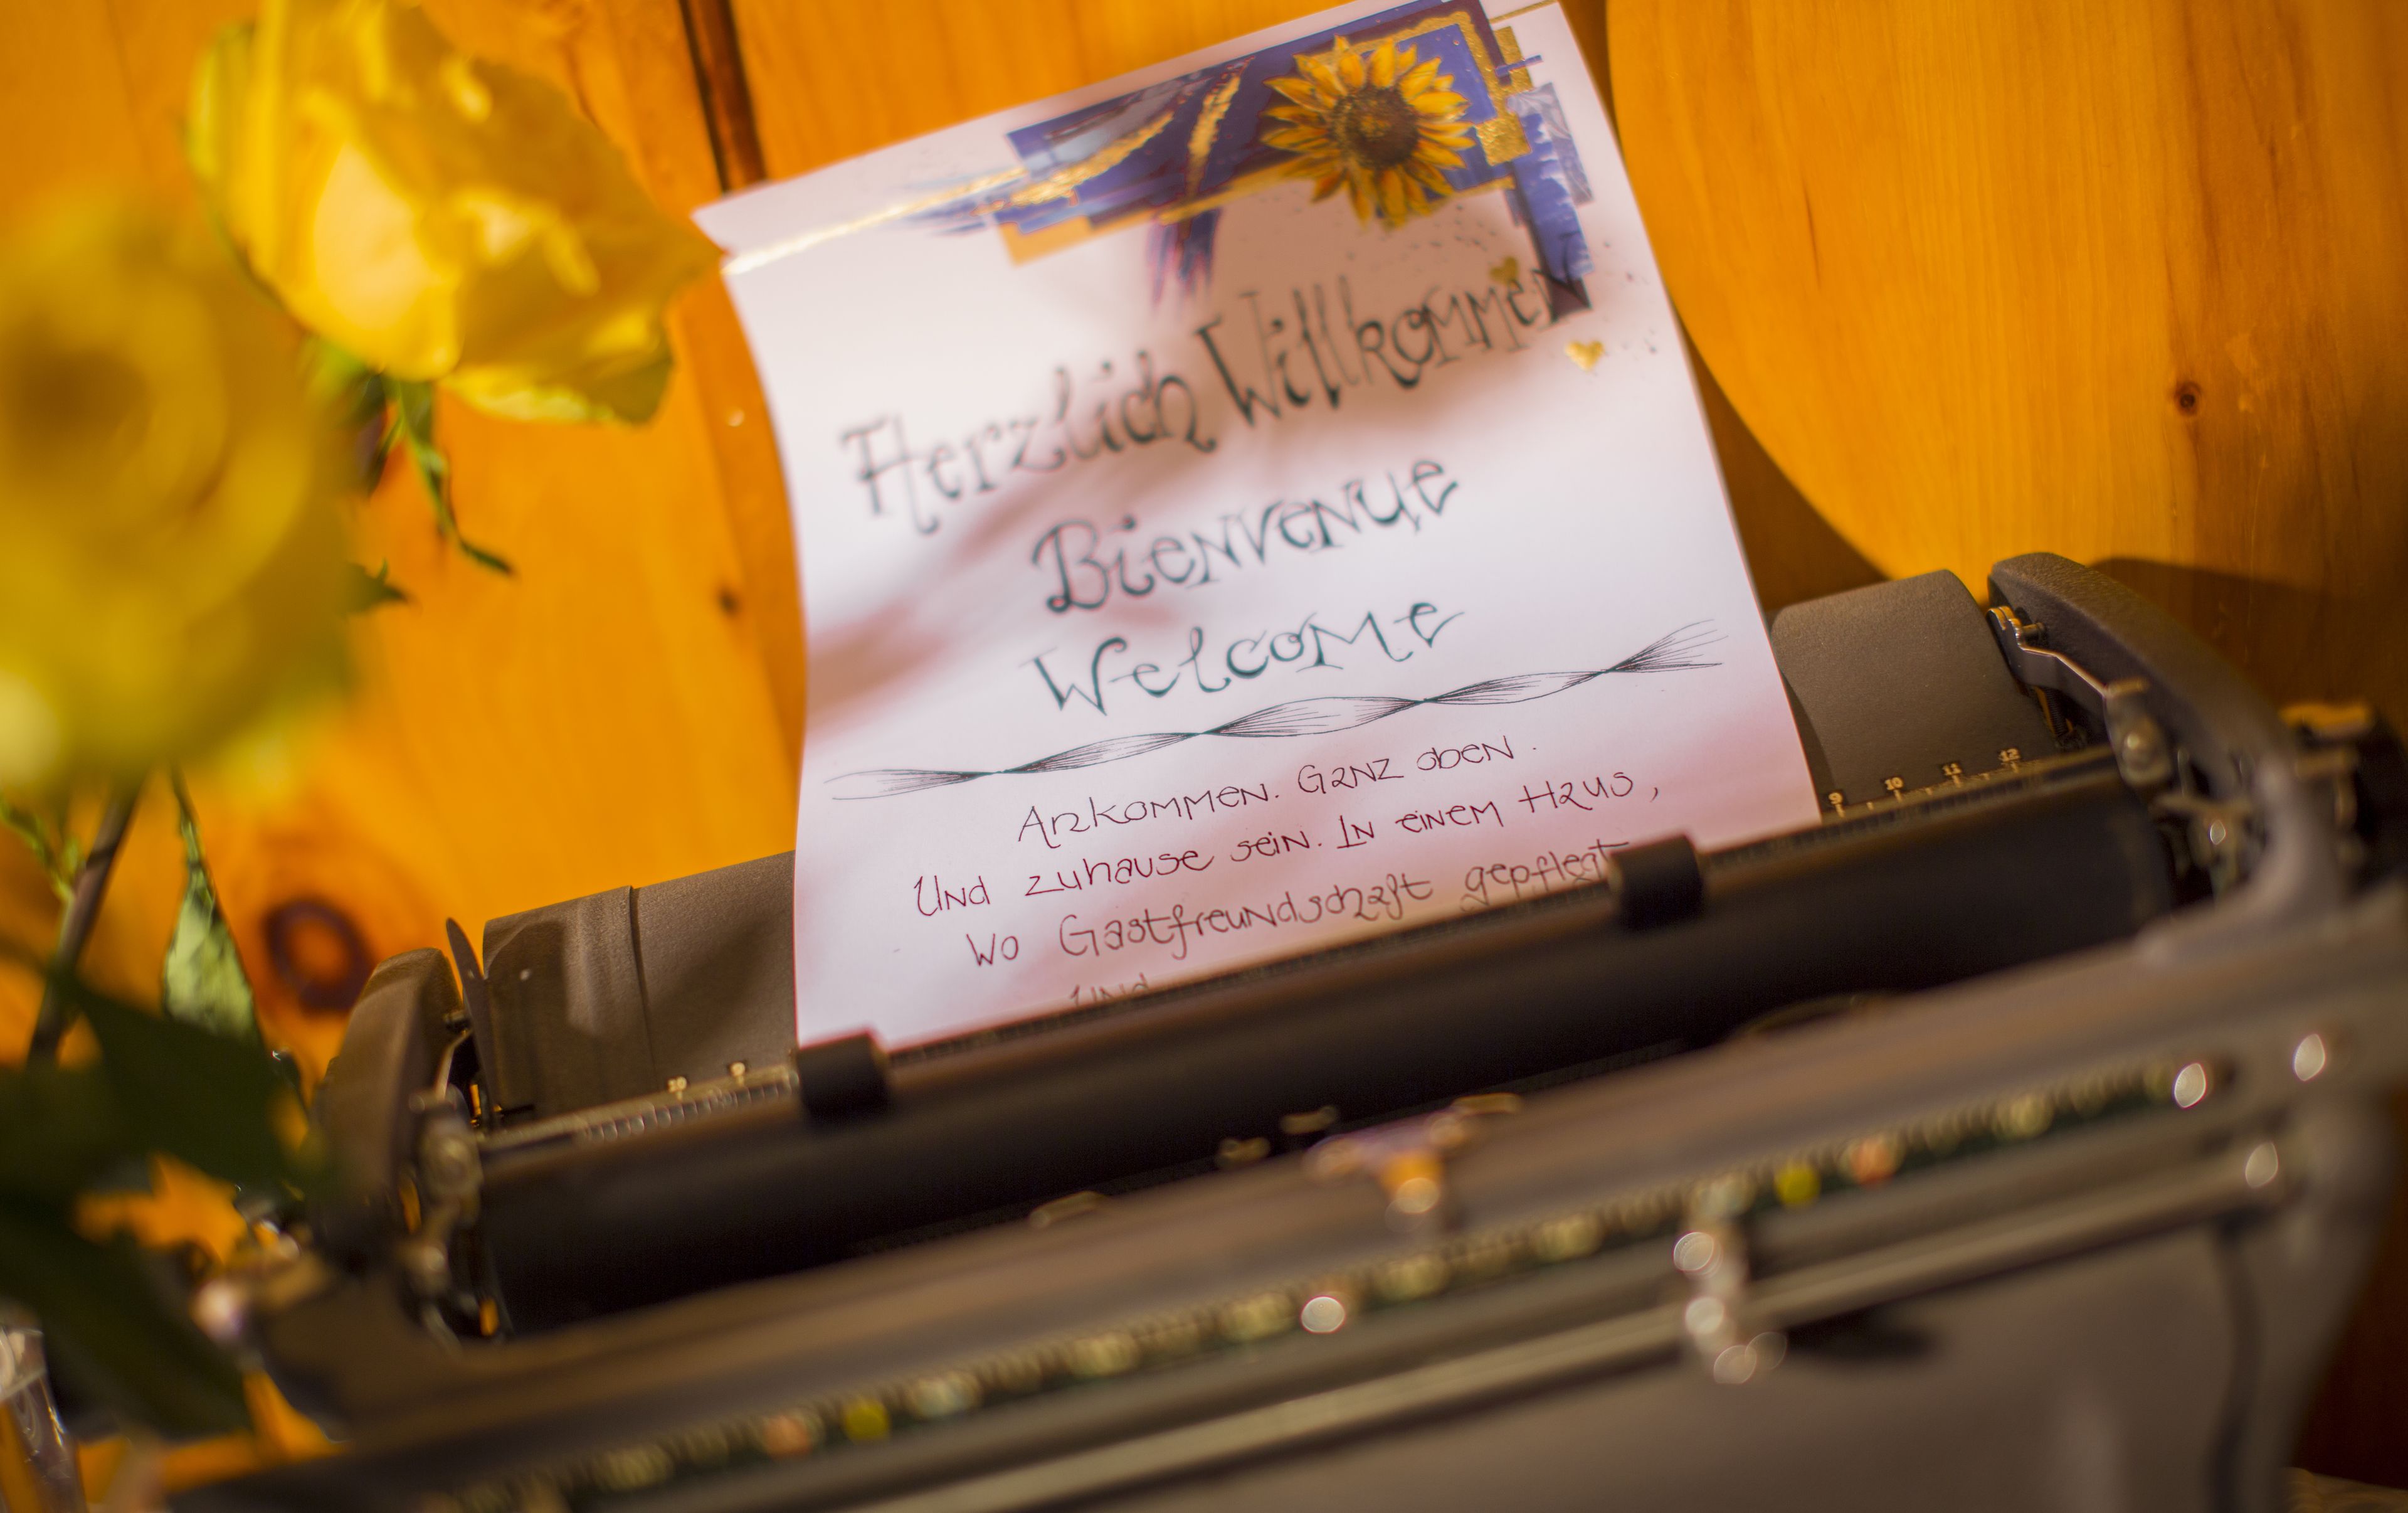 Herzlich Willkommen
Bienvenue
Welcome
Ankommen. Ganz oben.
Und zuhause sein. In einem Haus,
Wo Gastfreundschaft gepflegt
und
9 10 11 12
10 9